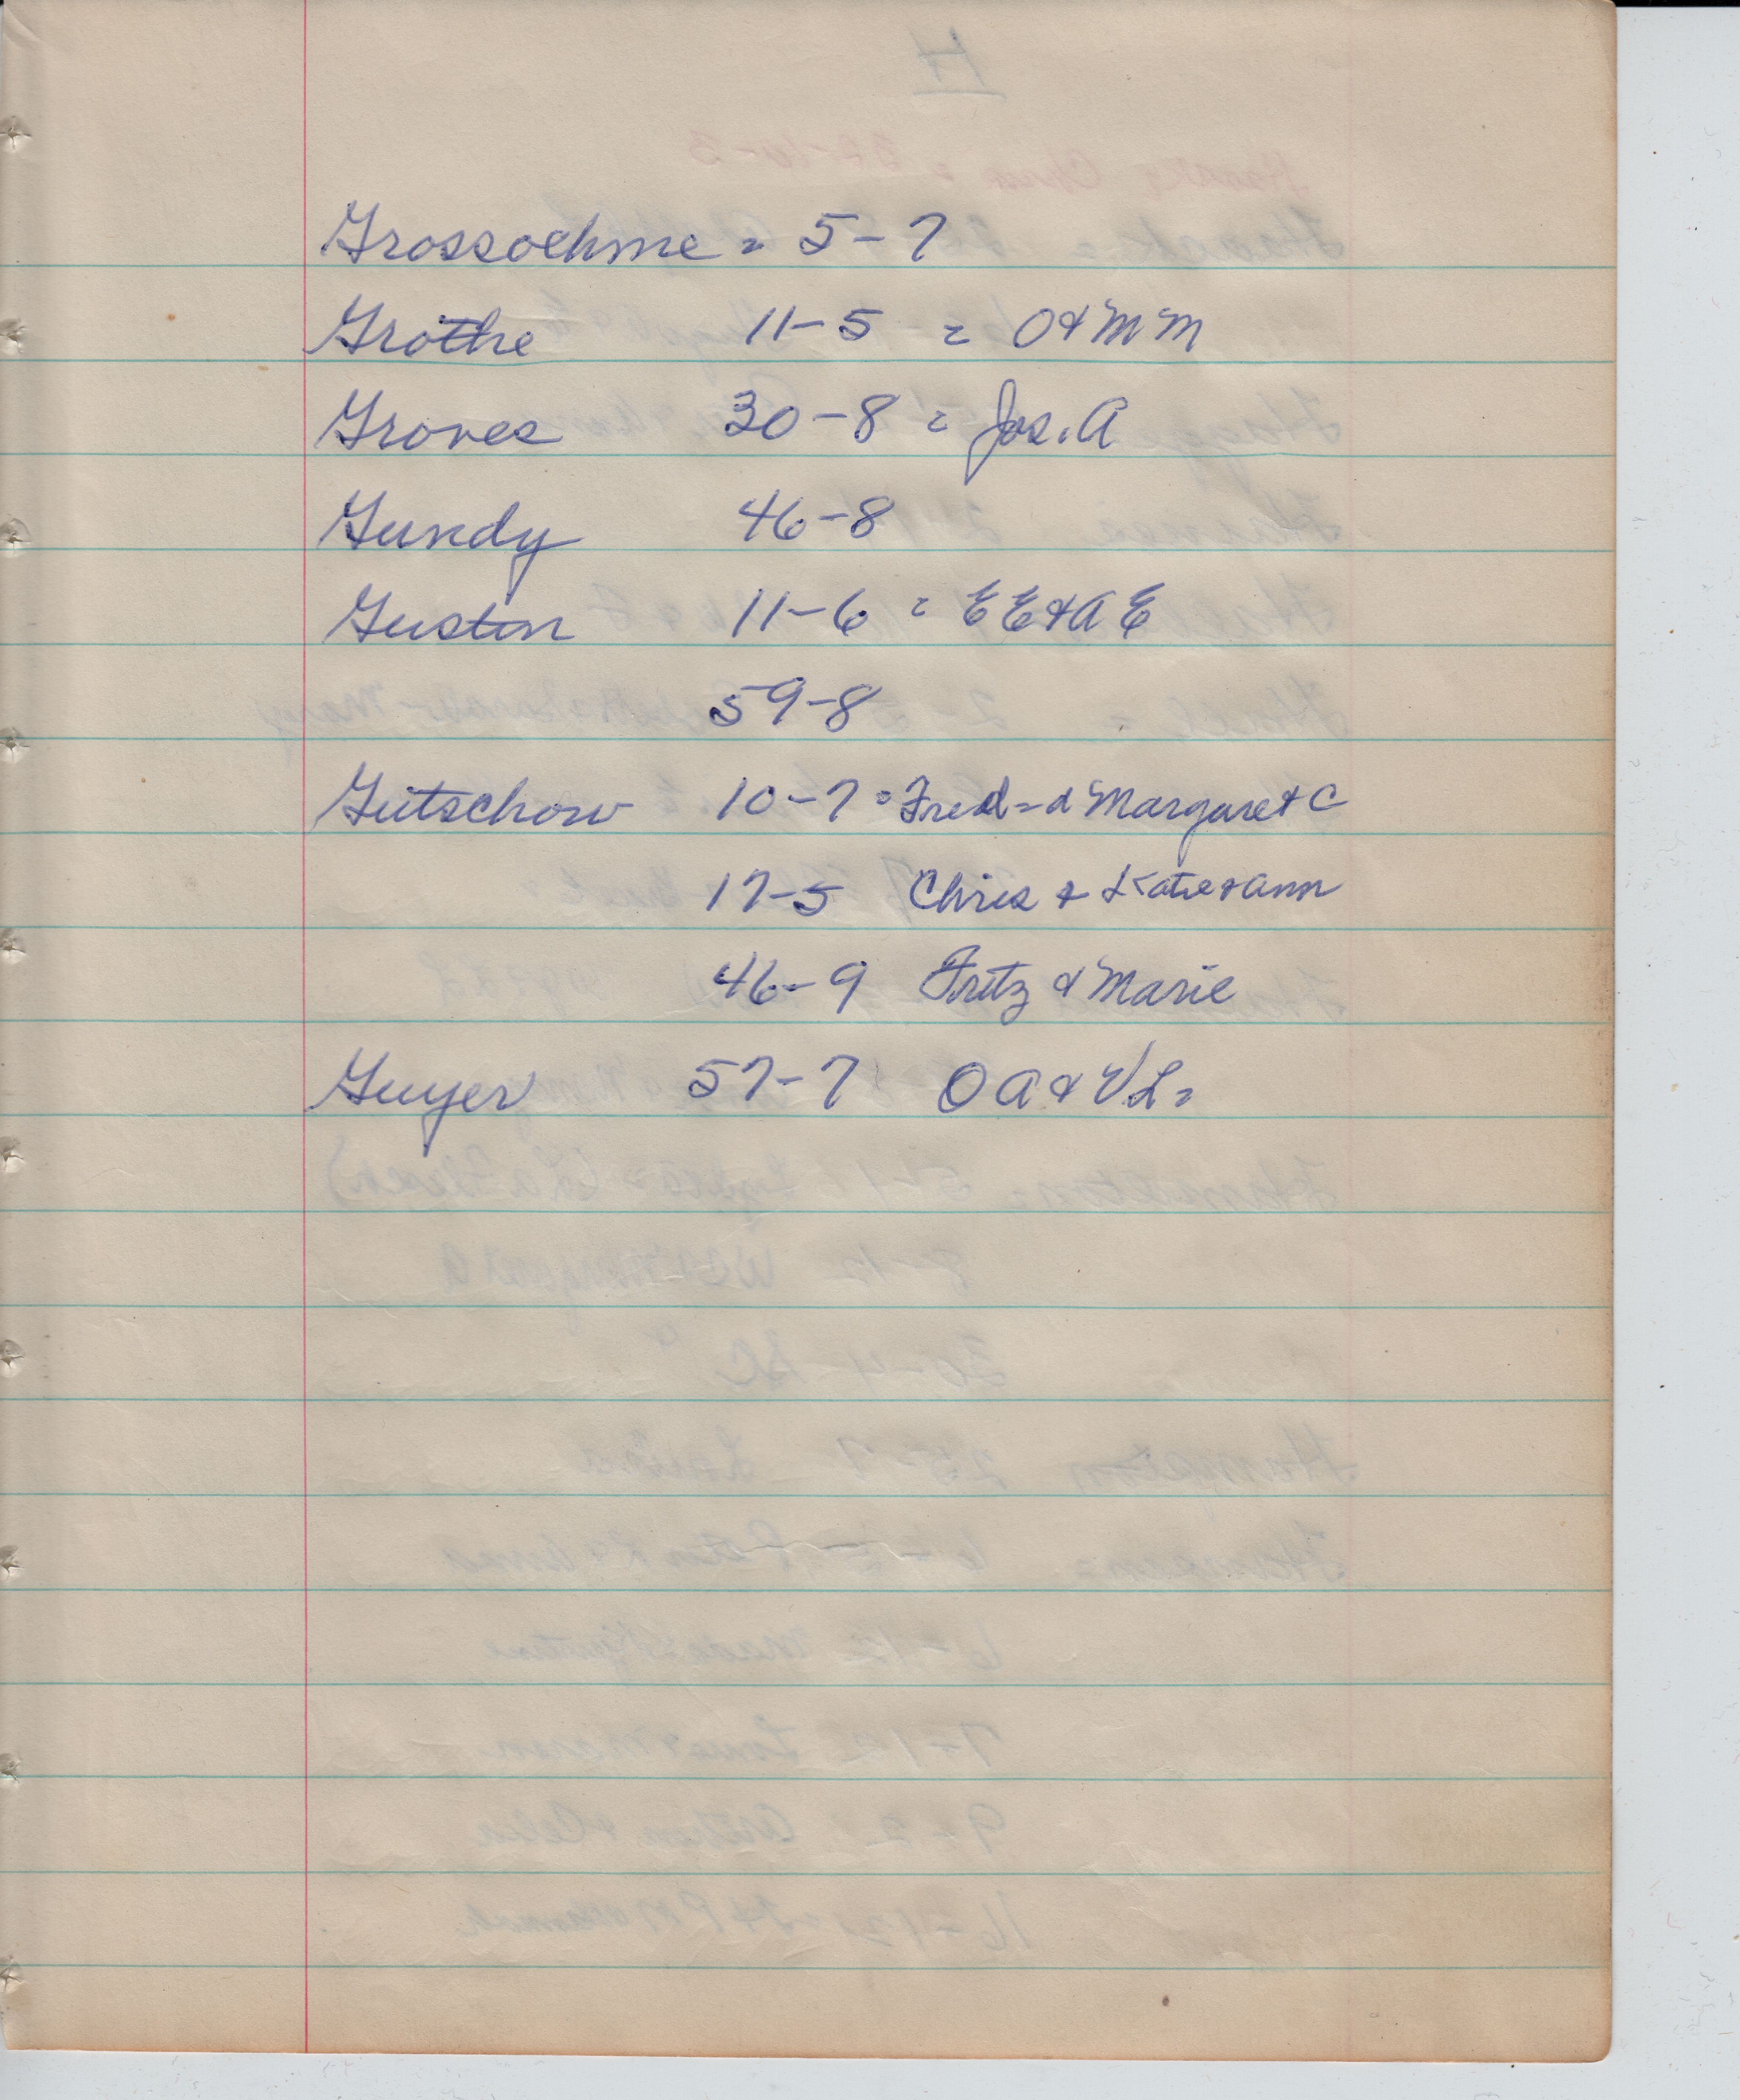 Grossoehme = 5-7
Grothe 11-5 = O & M M
Groves 30-8 = Jos. A
Gundy 46-8
Guston 11-6 = E E & A E
59-8
Gutschow 10-7 = Fred = & Margaret C
17-5 Chris & Katie & Ann
46-9 Fritz & Marie
Guyer 57-7 O A & V L =